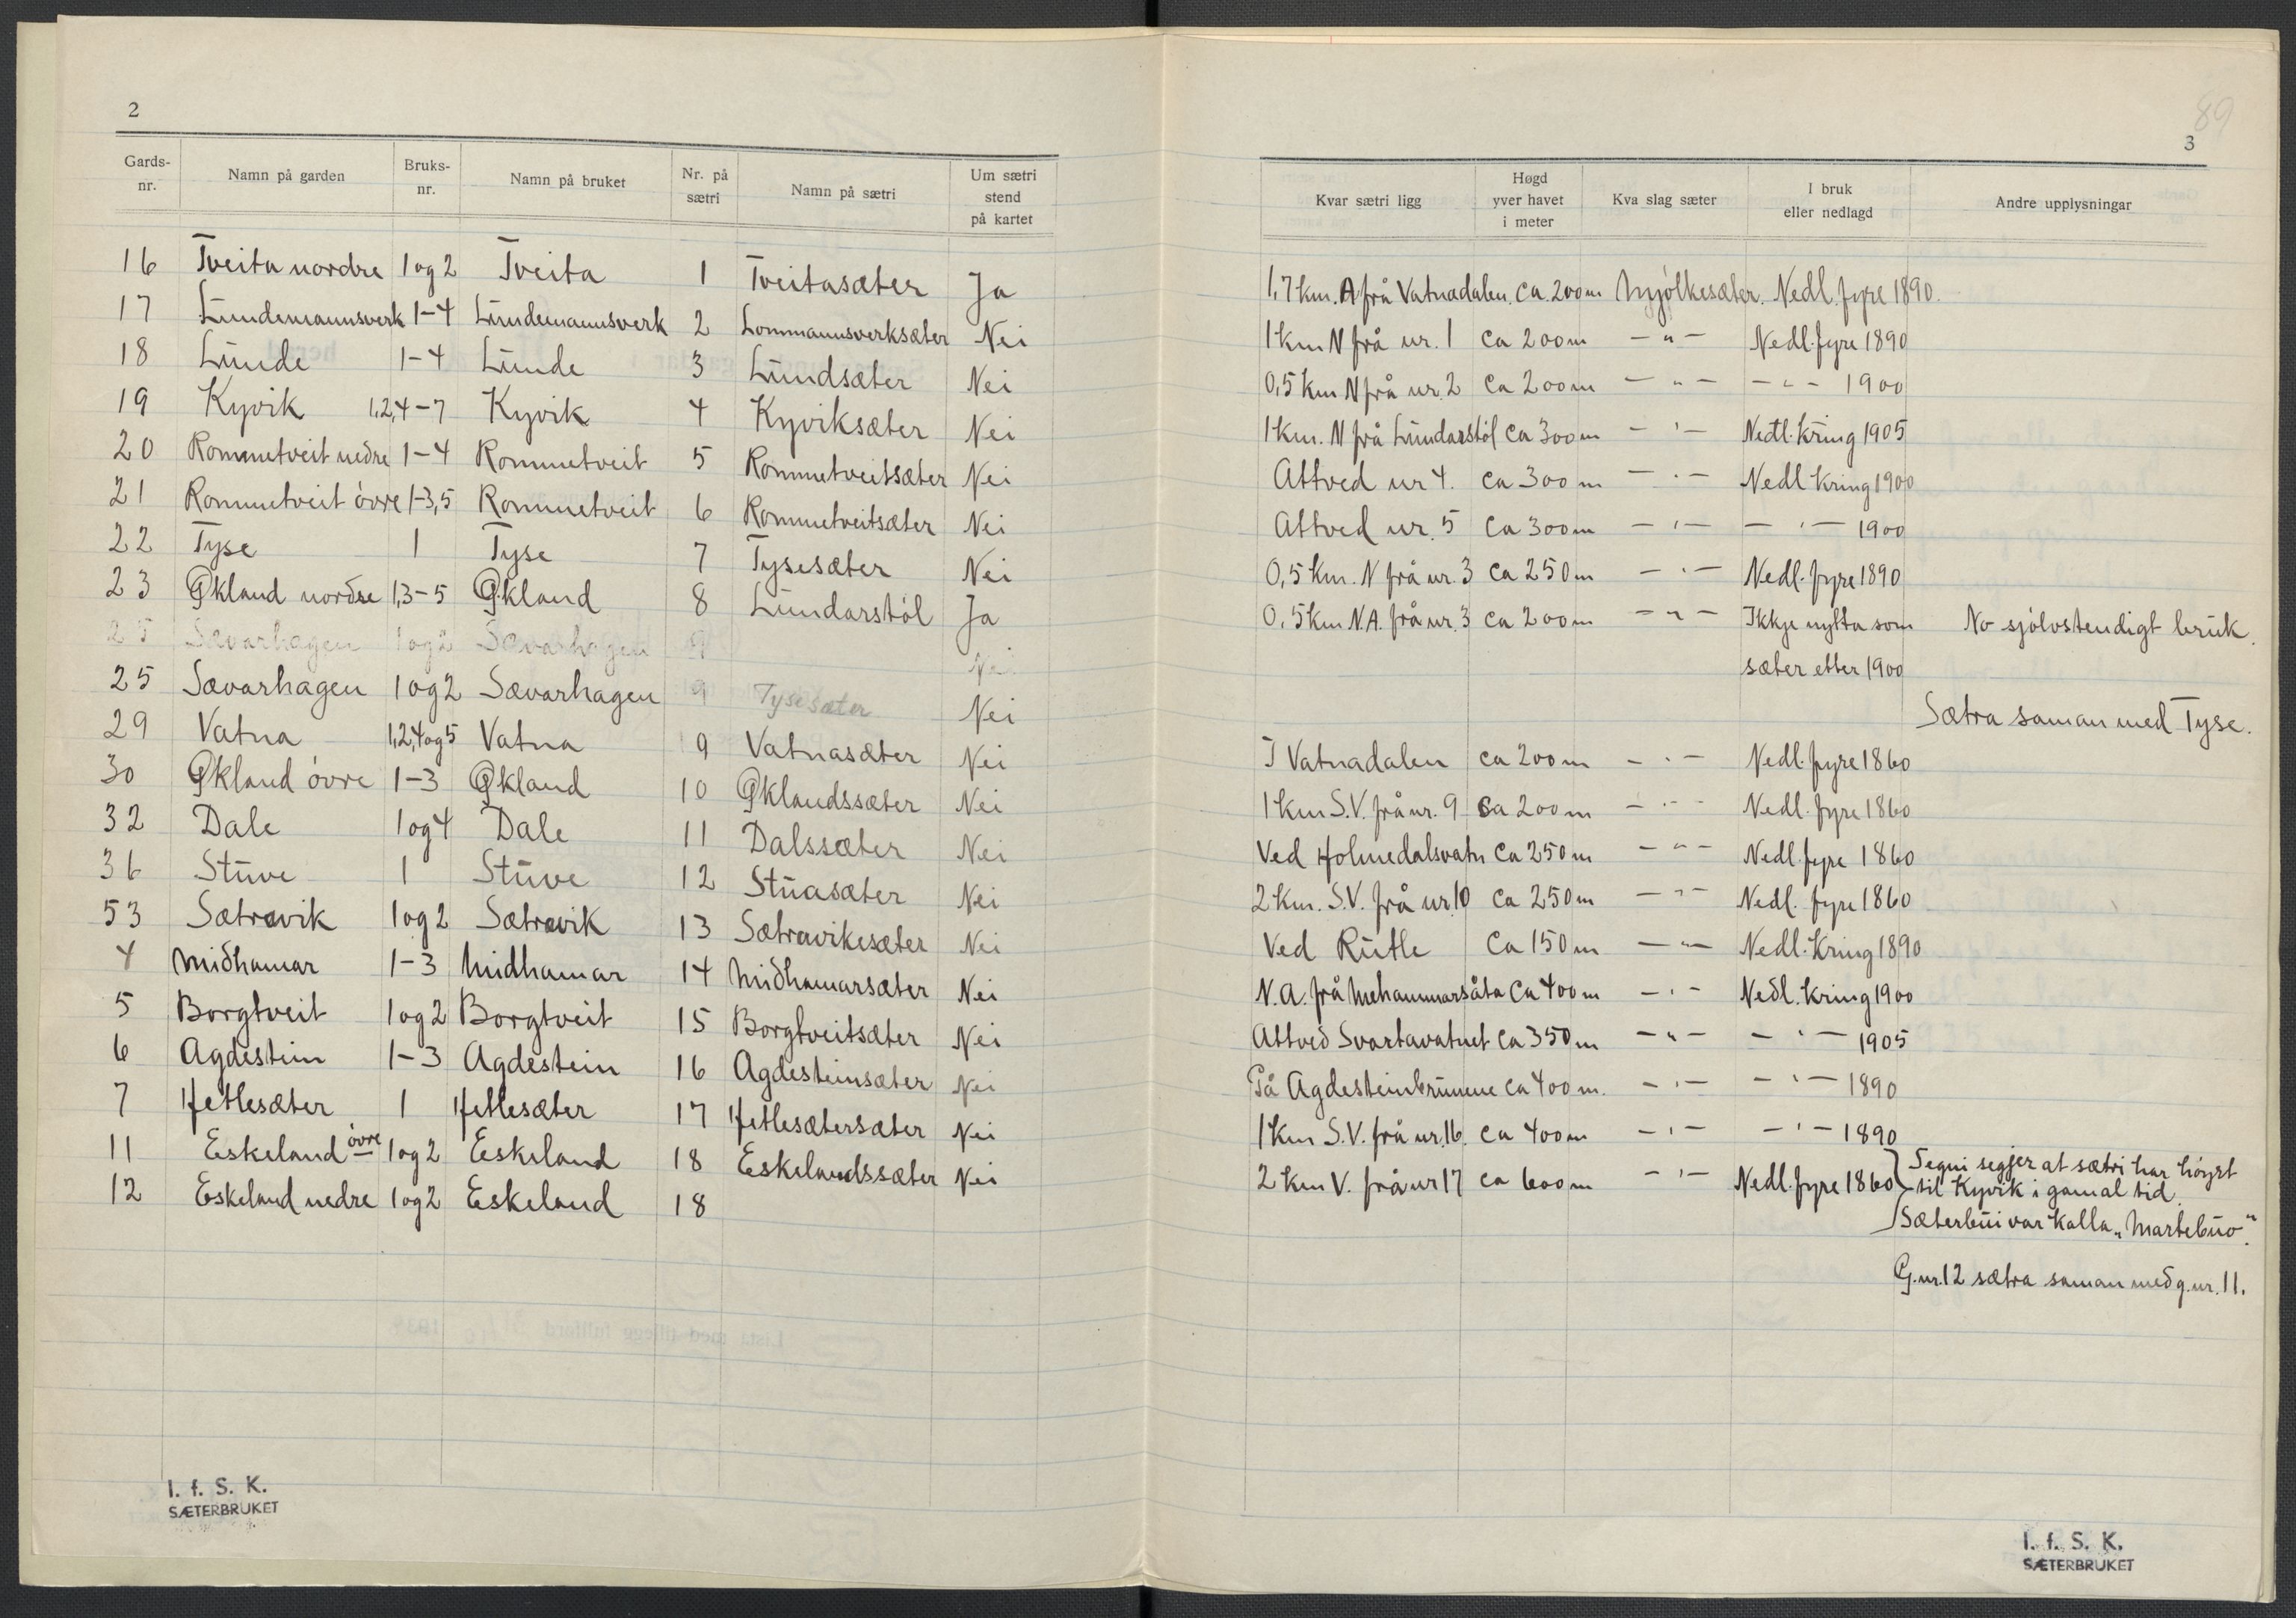 2
Gards-nr. Namn på garden Bruks-nr. Namn på bruket Nr. på sætri Namn på sætri Um sætri stend på kartet
16 Tveita nordre 1 og 2 Tveita 1 Tveitasæter Ja
17 Lundemannsverk 1-4 Lundemannsverk 2 Lommannsverksæter Nei
18 Lunde 1-4 Lunde 3 Lundsæter Nei
19 Kyvik 1,2,4-7 Kyvik 4 Kyviksæter Nei
20 Rommetveit nedre 1-4 Rommetveit 5 Rommetveitsæter Nei
21 Rommetveit óvre 1-3,5 Rommetveit 6 Rommetveitsæter Nei
22 Tyse 1 Tyse 7 Tysesæter Nei
23 Økland nordre 1,3-5 Økland 8 Lundarstól Ja
25 Sævarhagen 1 og 2 Sævarhagen 9 Nei
25 Sævarhagen 1 og 2 Sævarhagen 9 Tysesæter Nei
29 Vatna 1,2,4 og 5 Vatna 9 Vatnasæter Nei
30 Økland óvre 1-3 Økland 10 Øklandssæter Nei
32 Dale 1 og 4 Dale 11 Dalssæter Nei
36 Stuve 1 Stuve 12 Stuasæter Nei
53 Sætravik 1 og 2 Sætravik 13 Sætravikesæter Nei
4 Midhamar 1-3 Midhamar 14 Midhamarsæter Nei
5 Borgtveit 1 og 2 Borgtveit 15 Borgtveitsæter Nei
6 Agdestein 1-3 Agdestein 16 Agdesteinsæter Nei
7 Hetlesæter 1 Hetlesæter 17 Hetlesætersæter Nei
11 Eskeland óvre 1 og 2 Eskeland 18 Eskelandssæter Nei
12 Eskeland nedre 1 og 2 Eskeland 18
I. f. S. K.
SÆTERBRUKET
89
3
Kvar sætri ligg Høgd yver havet i meter Kva slag sæter I bruk eller nedlagd Andre upplysningar
1,7 km. A frå Vatnadalen. Ca 200 m Mjólkesæter. Nedl. fyre 1890.
1 km N frå nr. 1 Ca 200 m - " - Nedl. fyre 1890
0,5 km N frå nr. 2 Ca 200 m - " - - " - 1900
1 km. N frå Lundarstól Ca 300 m - " - Nedl. kring 1905
Attved nr 4. Ca 300 m - " - Nedl kring 1900
Attved nr. 5 Ca 300 m - " - - " - 1900
0,5 km. N frå nr. 3 Ca 250 m - " - Nedl. fyre 1890
0,5 km N.A. frå nr. 3 Ca 200 m - " - Ikkje nytta som No sjólvstendigt bruk.
sæter etter 1900
Sætra saman med Tyse.
I Vatnadalen Ca 200 m - " - Nedl. fyre 1860
1 km S.V. frå nr. 9 Ca 200 m - " - Nedl. fyre 1860
Ved Holmedalsvatn Ca 250 m - " - Nedl. fyre 1860
2 km. S.V. frå nr. 10 Ca 250 m - " - Nedl. fyre 1860
Ved Rutle Ca 150 m - " - Nedl. kring 1890
N.A. frå Mehammarsåta Ca 400 m - " - Nedl. kring 1900
Attved Svartavatnet Ca 350 m - " - - " - 1905
På Agdesteinbrunene Ca 400 m. - " - - " - 1890
1 km S.V. frå nr. 16. Ca 400 m - " - - " - 1890
2 km V. frå nr 17 Ca 600 m - " - Nedl. fyre 1860 Segni segjer at sætri har hóyrt
til Kyvik i gamal tid.
Sæterbui var kalla „Martebuo".
G.nr. 12 sætra saman med g.nr. 11.
I. f. S. K.
SÆTERBRUKET